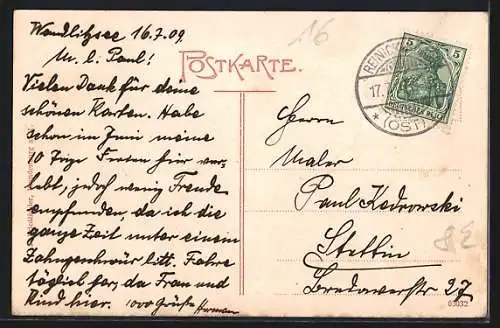 Wandlitzsee 16.7.09.
M. l. Paul!
Vielen Dank für deine
schönen Karten. Habe
schon im Juni meine
10 Tage Ferien hier ver-
lebt, jedoch wenig Freude
empfunden, da ich die
ganze Zeit unter einem
Zahngeschwür litt. Fahre
täglich her, da Frau und
Kind hier. 1000 Grüße Herman
16
POSTKARTE.
REINICK
17.7
* (OST)
5
5
DEUTSCHES REICH
Herrn
Maler
Paul Kedrowski
Stettin
Bredowerstr 27
8E
03032